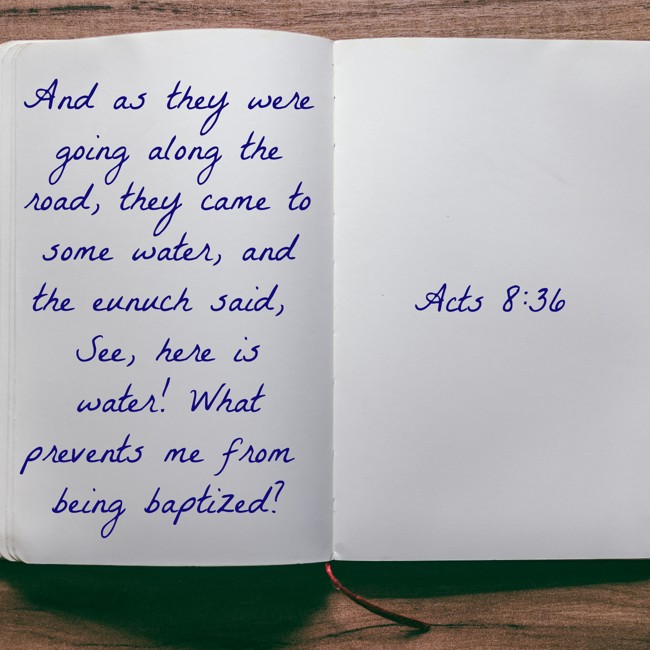 And as they were
going along the
road, they came to
some water, and
the eunuch said,
See, here is
water! What
prevents me from
being baptized?
Acts 8:36